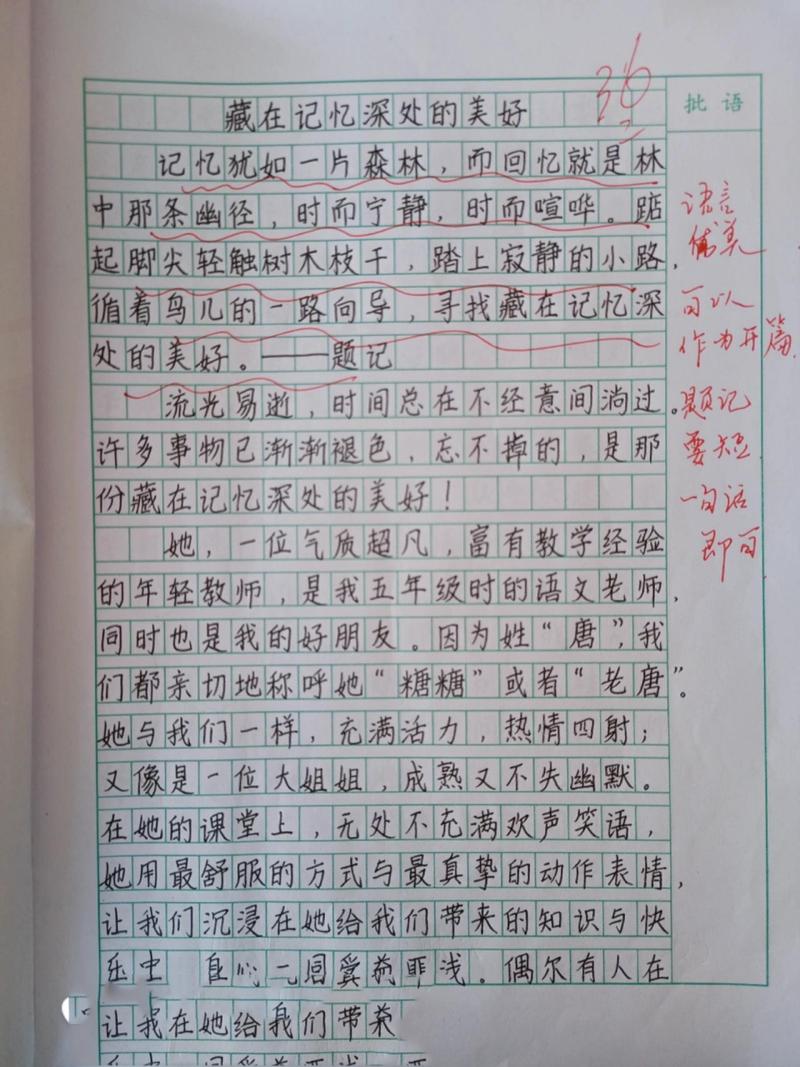 36
批语
藏在记忆深处的美好
记忆犹如一片森林，而回忆就是林
中那条幽径，时而宁静，时而喧哗。踮
起脚尖轻触树木枝干，踏上寂静的小路，
循着鸟儿的一路向导，寻找藏在记忆深
处的美好。——题记
流光易逝，时间总在不经意间淌过。
许多事物已渐渐褪色，忘不掉的，是那
份藏在记忆深处的美好！
她，一位气质超凡，富有教学经验
的年轻教师，是我五年级时的语文老师，
同时也是我的好朋友。因为姓“唐”，我
们都亲切地称呼她“糖糖”或者“老唐”。
她与我们一样，充满活力，热情四射；
又像是一位大姐姐，成熟又不失幽默。
在她的课堂上，无处不充满欢声笑语，
她用最舒服的方式与最真挚的动作表情，
让我们沉浸在她给我们带来的知识与快
浅。偶尔有人在
让我在她给我们带来
语言
优美
可以
作为开篇.
题记
要短
一句话
即可